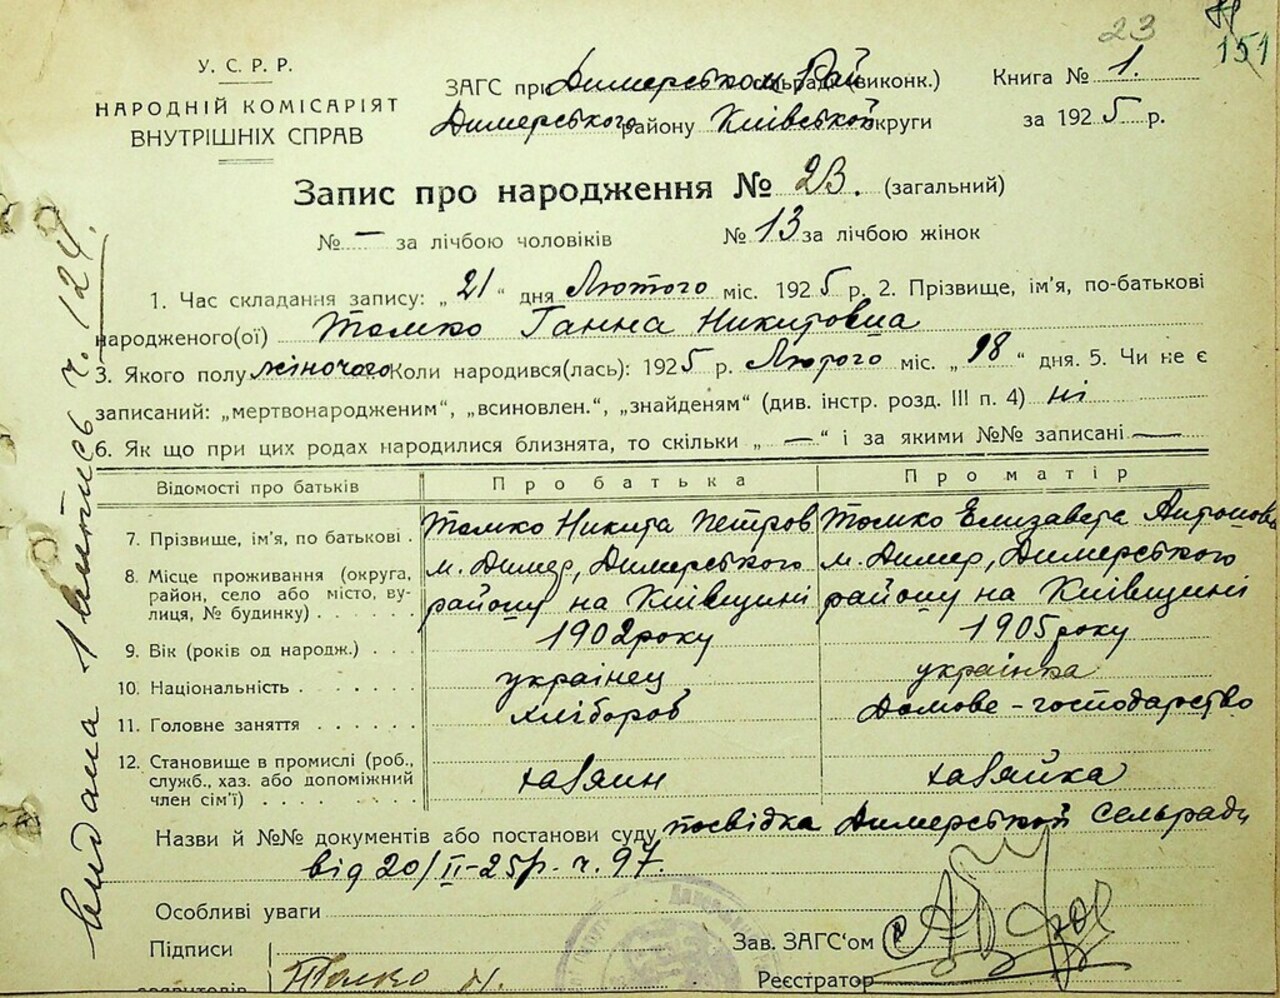 23
151
У. С. Р. Р.
НАРОДНІЙ КОМІСАРІЯТ
ВНУТРІШНІХ СПРАВ
ЗАГС при Димерськом Рай сельради (виконк.)
Димерського району Київської округи
Книга № 1.
за 1925 р.
Запис про народження № 23. (загальний)
№ — за лічбою чоловіків № 13 за лічбою жінок
1. Час складання запису: „21“ дня Лютого міс. 1925 р. 2. Прізвище, ім'я, по-батькові
народженого(ої) Томко Ганна Никитовна
3. Якого полу жіночого Коли народився(лась): 1925 р. Лютого міс. „18“ дня. 5. Чи не є
записаний: „мертвонародженим“, „всиновлен.“, „знайденям“ (див. інстр. розд. III п. 4) ні
6. Як що при цих родах народилися близнята, то скільки „—“ і за якими №№ записані —
Відомості про батьків Про батька Про матір
7. Прізвище, ім'я, по батькові . Томко Никита Петров Томко Елизавета Антонова
8. Місце проживання (округа, район, село або місто, вулиця, № будинку) . . . . м. Димер, Димерського району на Київщині м. Димер, Димерського району на Київщині
9. Вік (років од народж.) . . . 1902 року 1905 року
10. Національність . . . . . . українец українка
11. Головне заняття . . . . . . хлібороб Домове-господарство
12. Становище в промислі (роб., служб., хаз. або допоміжний член сім'ї) . . . . . . . . хазяин хазяйка
Назви й №№ документів або постанови суду посвідка Димерської Сельради
від 20/II-25р. ч. 97.
Особливі уваги
Підписи
Томко Н.
Зав. ЗАГС‘ом
Реєстратор
видана 1 витпись ч. 124.